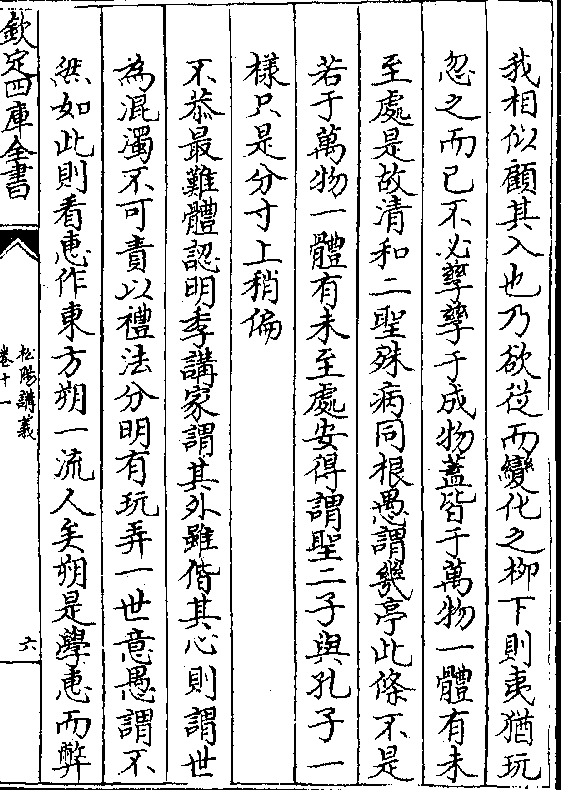 我相似顧其入也乃欲從而變化之柳下則夷猶玩
忽之而已不必孳孳于成物蓋皆于萬物一體有未
至處是故清和二聖殊病同根愚謂幾亭此條不是
若于萬物一體有未至處安得謂聖二子與孔子一
樣只是分寸上稍偏
不恭最難體認明季講家謂其外雖偕其心則謂世
為混濁不可責以禮法分明有玩弄一世意愚謂不
然如此則看惠作東方朔一流人矣朔是學惠而弊
欽定四庫全書
松陽講義
卷十一
六